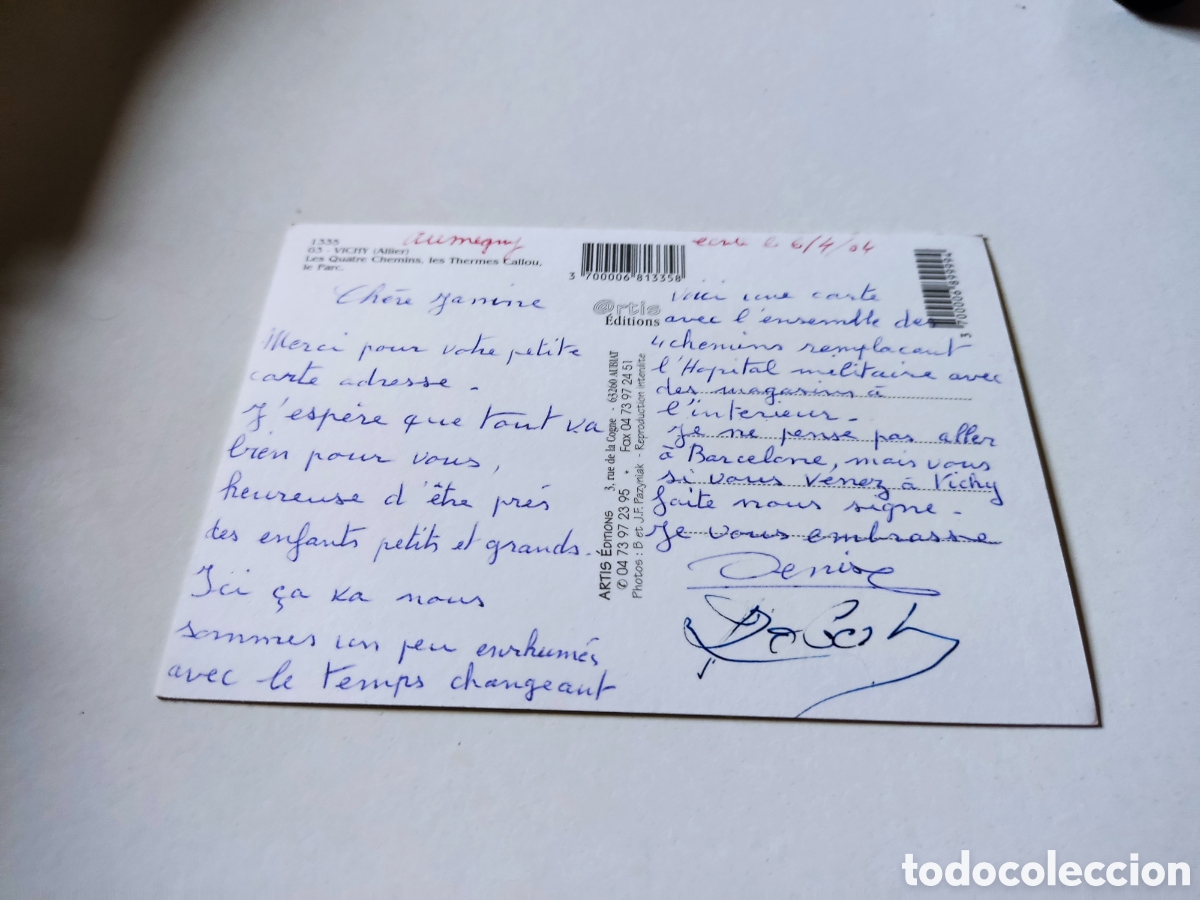 1335
03 - VICHY (Allier)
Les Quatre Chemins, les Thermes Callou,
le Parc.
3 700006 813358
le 6/4/04
Chère Janine
Merci pour votre petite
carte adresse.
J'espère que tout va
bien pour vous,
heureuse d'être près
des enfants petits et grands.
Ici ça va nous
sommes un peu enrhumés
avec le temps changeant
Artis
Éditions
ARTIS ÉDITIONS 3, rue de la Cogne - 63260 AUBIAT
✆ 04 73 97 23 95 • Fax 04 73 97 24 51
Photos : B et J.F. Pazyniak - Reproduction interdite
3 700006 899994
Voici une carte
avec l'ensemble des
4 chemins remplaceut
l'Hopital militaire avec
des magasins à
l'interieur.
Je ne pense pas aller
à Barcelone, mais vous
si vous venez à Vichy
faite nous signe.
Je vous embrasse
Denise
todocoleccion